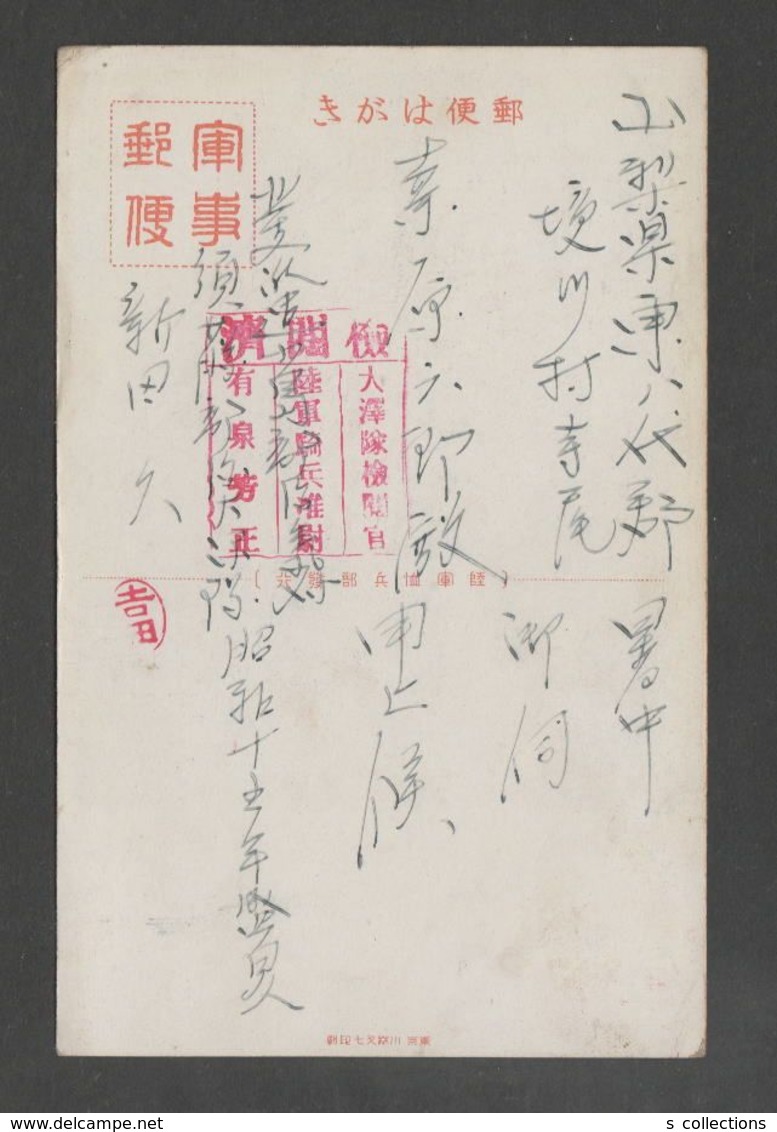 郵便はがき
軍事郵便
山梨県東八代郡
境川村寺尾
原六郎殿
暑中
御伺
申上候
検閲済
大澤隊檢閲官
陸軍騎兵准尉
有泉芳正
北支派遣
新田久
吉田
昭和十五年盛夏
(陸軍恤兵部發行)
delcampe.net
s collections